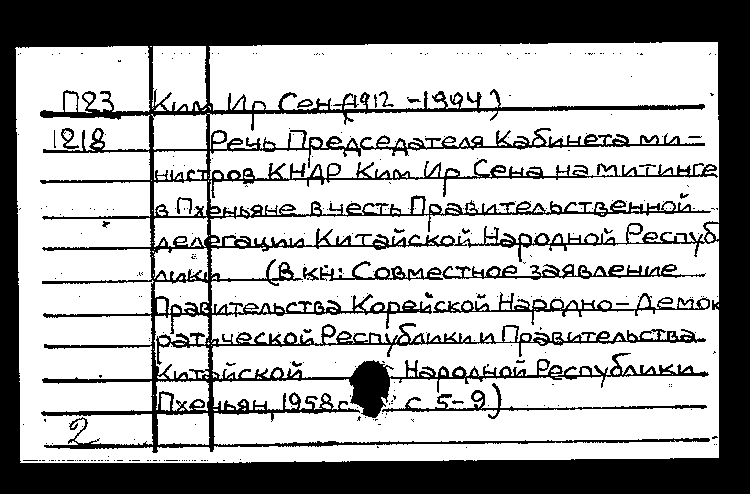 П23 Ким Ир Сен (1912 -1994)
1218 Речь Председателя Кабинета ми-
нистров КНДР Ким Ир Сена на митинге
в Пхеньяне в честь Правительственной
делегации Китайской Народной Респуб
лики. (В кн: Совместное заявление
Правительства Корейской Народно-Демок
ратической Республики и Правительства
Китайской Народной Республики
Пхеньян, 1958г с. 5-9)
2